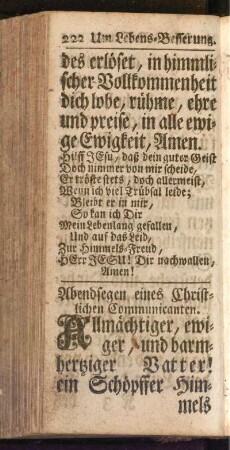 222 Um Lebens-Besserung.
des erlöset, in himmli-
scher Vollkommenheit
dich lobe, rühme, ehre
und preise, in alle ewi-
ge Ewigkeit, Amen.
Hilff JEsu, daß dein guter Geist
Doch nimmer von mir scheide,
Er tröste stets, doch allermeist,
Wenn ich viel Trübsal leide;
Bleibt er in mir,
So kan ich Dir
Mein Lebenlang gefallen,
Und auf das Leid,
Zur Himmels-Freud,
HErr JESU! Dir nachwallen,
Amen!
Abendsegen eines Christ-
lichen Communicanten.
Allmächtiger, ewi-
ger, und barm-
hertziger Vatter!
ein Schöpffer Him-
mels